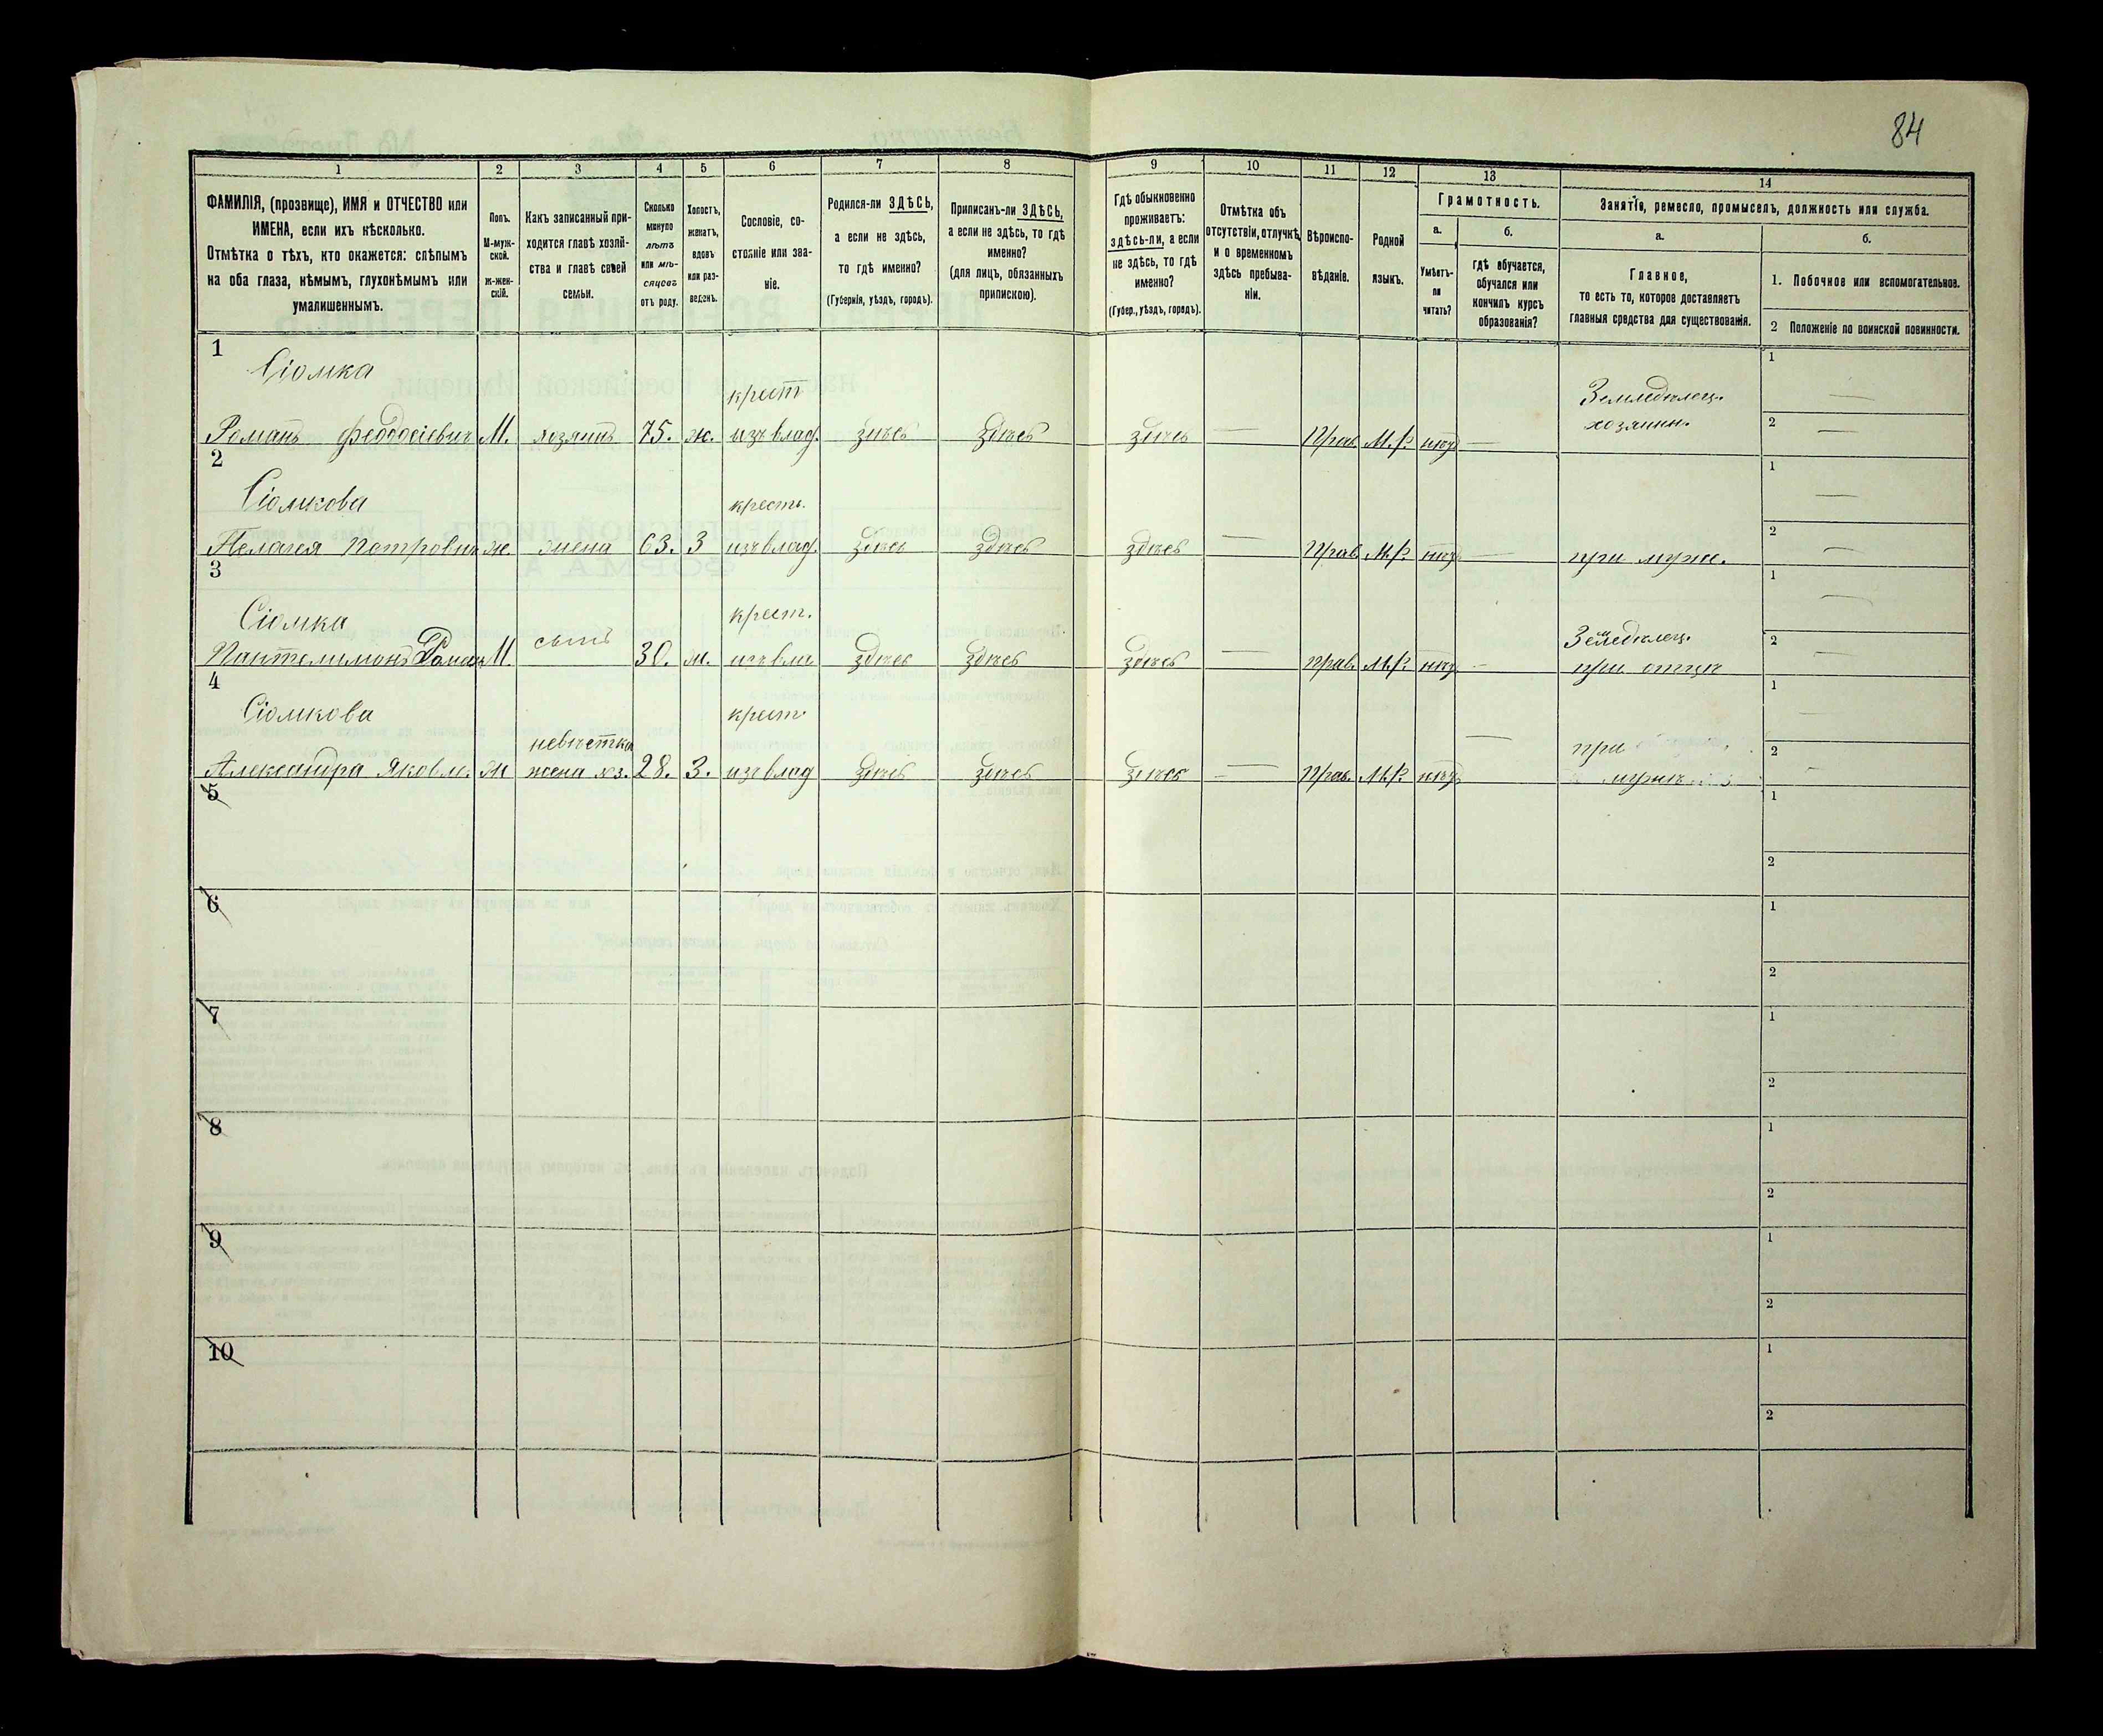 84
1 2 3 4 5 6 7 8 9 10 11 12 13 14
ФАМИЛІЯ, (прозвище), ИМЯ и ОТЧЕСТВО или
ИМЕНА, если ихъ нѣсколько.
Отмѣтка о тѣхъ, кто окажется: слѣпымъ
на оба глаза, нѣмымъ, глухонѣмымъ или
умалишеннымъ.
Полъ.
М-муж-
ской.
ж-жен-
скій.
Какъ записанный при-
ходится главѣ хозяй-
ства и главѣ своей
семьи.
Сколько
минуло
лѣтъ
или мѣ-
сяцевъ
отъ роду.
Холостъ,
женатъ,
вдовъ
или раз-
веденъ.
Сословіе, со-
стояніе или зва-
ніе.
Родился-ли ЗДѢСЬ,
а если не здѣсь,
то гдѣ именно?
(Губернія, уѣздъ, городъ).
Приписанъ-ли ЗДѢСЬ,
а если не здѣсь, то гдѣ
именно?
(для лицъ, обязанныхъ
припискою).
Гдѣ обыкновенно
проживаетъ:
здѣсь-ли, а если
не здѣсь, то гдѣ
именно?
(Губер., уѣздъ, городъ).
Отмѣтка объ
отсутствіи, отлучкѣ
и о временномъ
здѣсь пребыва-
ніи.
Вѣроиспо-
вѣданіе.
Родной
языкъ.
Грамотность.
а.
Умѣетъ-
ли
читать?
б.
гдѣ обучается,
обучался или
кончилъ курсъ
образованія?
Занятіе, ремесло, промыселъ, должность или служба.
а.
Главное,
то есть то, которое доставляетъ
главныя средства для существованія.
б.
1. Побочное или вспомогательное.
2 Положеніе по воинской повинности.
1
Сіомка крест Земледѣлец.
1
Романъ Феодосіевич М. хозяинъ 75. ж. изъ влад. здѣсь здѣсь здѣсь — Прав. М.Р. нѣт — хозяин.
2
2
Сіомкова крестъ.
1
Пелагея Петровна ж. жена 63. З изъ влад. здѣсь здѣсь здѣсь — Прав. М.Р. нѣт — при муж.
2
3
Сіомка крест. Земледѣлец.
1
Пантелимонъ Роман М. сынъ 30. ж. изъ вла здѣсь здѣсь здѣсь — прав. М.Р. нѣт - при отцѣ
2
4
Сіомкова невѣстка крест. при
1
Александра Яковле. ж жена хоз. 28. З. изъ влад здѣсь здѣсь здѣсь — Прав. М.Р. нѣт — мужѣ
2
5
1
2
6
1
2
7
1
2
8
1
2
9
1
2
10
1
2